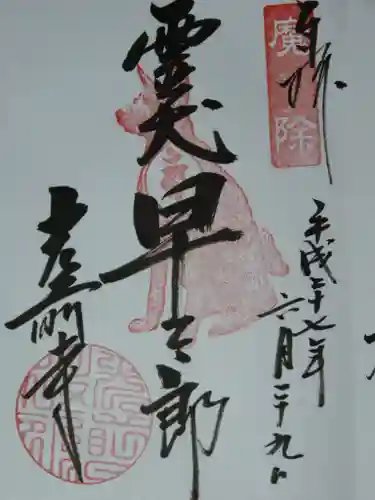 奉拝
魔除
平成二十七年
六月二十九日
霊犬早太郎
光前寺